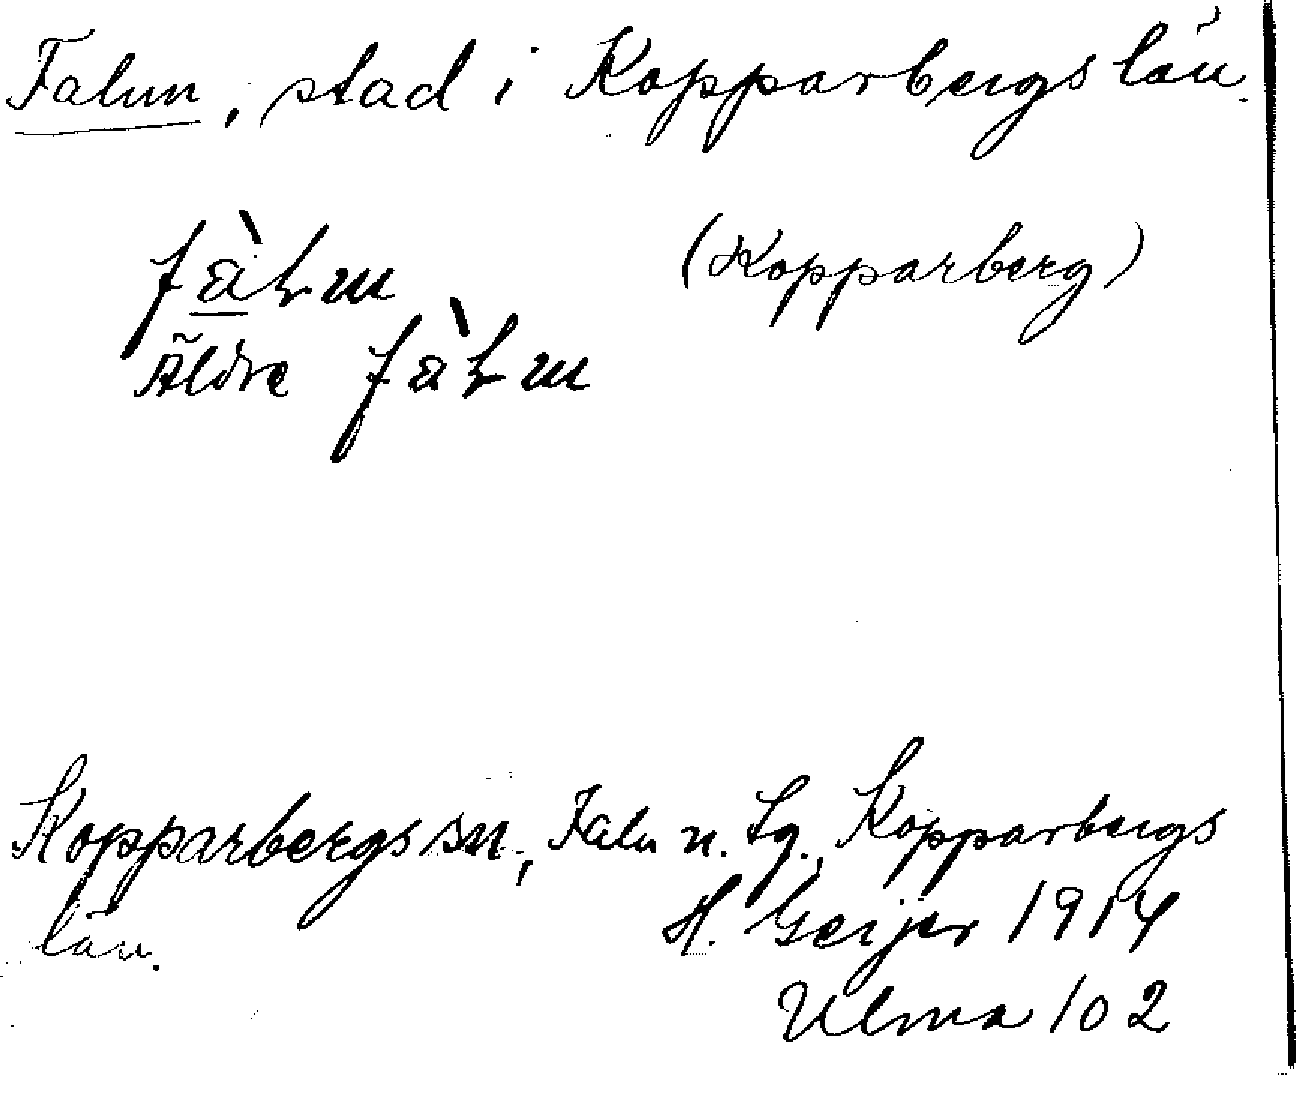 Falun, stad i Kopparbergs län.
(Kopparberg)
Äldre
Kopparbergs sn, Falu n. tg., Kopparbergs
län.
H. Geijer 1914
Ulma 102